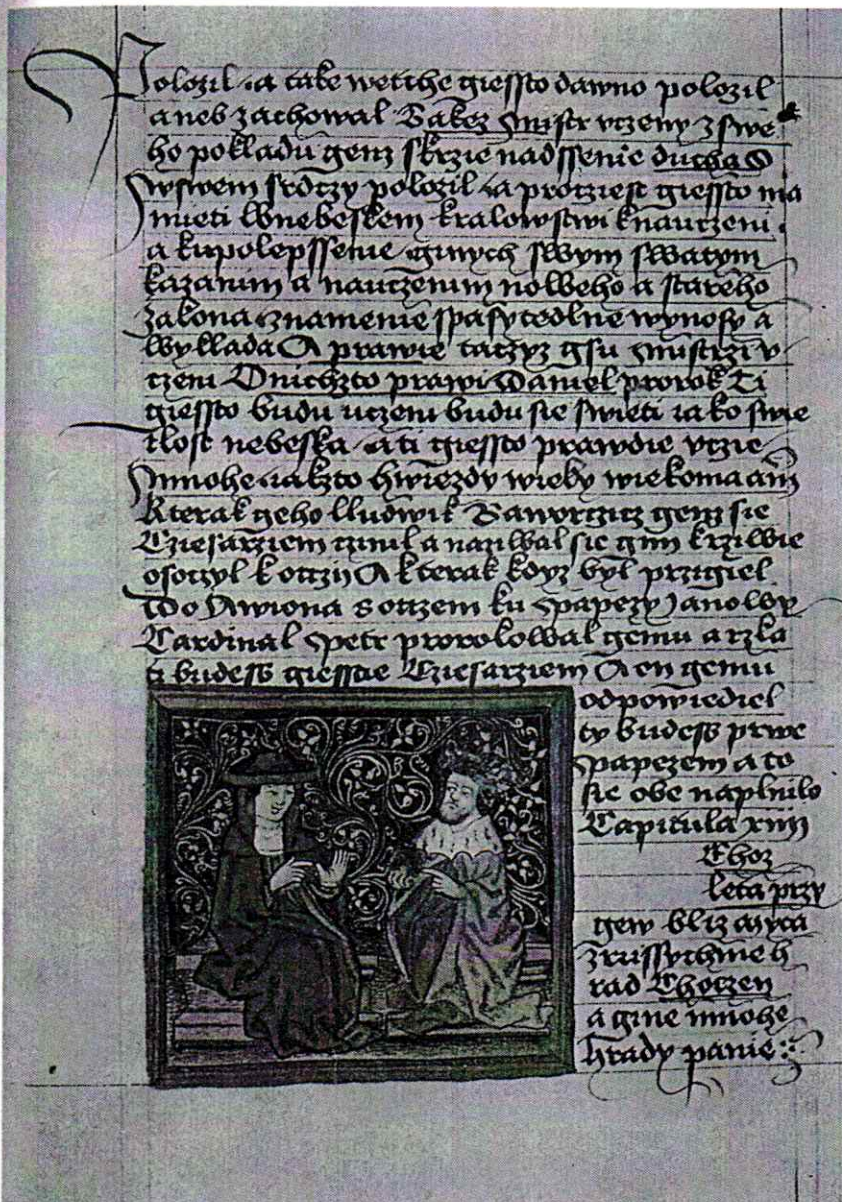 Polozil · a take wetche giessto dawno polozil
aneb zachowal Takez Mistr vczeny z swe
ho pokladu genz skrzie nadssenie ducha S
wswem srdczy polozil · a procziest giessto ma
mieti wnebeskem kralowstwi knauczeni ·
a kupolepssenie · ginych swym swatym
kazanim a nauczenim noweho a stareho
zakona · znamenie spasytedlne wynosy a
wyklada A prawie taczyz gsu Mistrzi v
czeni O nichzto prawi Daniel prorok Ti
giessto budu uczeni budu sie swieti iako swie
tlost nebeska · a ti giessto prawdie vczie
Mnohe · iakzto hwiezdy wieky wiekoma am̄
Kterak geho lludwik Baworzicz genz sie
Cziesarziem czinil a naziwal sie gym krziwie
osoczyl k otczij A kterak kdyz byl przigiel
Do Awiona s otczem ku papezy Janowy
Cardinal Petr prorokowal gemu a rzka
ty budess giesstie Cziesarziem A on gemu
odpowiediel
ty budess prwe
papezem a to
sie obe naplnilo
Capitula xiiij
Thoz
leta przy
gew bliz myta
zrussychme h
rad Choczen
a gine mnohe
hrady panie :